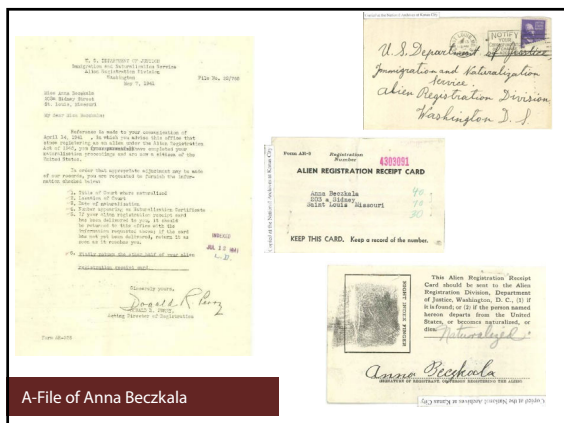 U. S. DEPARTMENT OF JUSTICE
Immigration and Naturalization Service
Alien Registration Division
Washington
File No.
1941
Miss Anna Beczkala
Sidney Street
St. Louis, Missouri
My dear Miss Beczkala:
Reference is made to your communication of
April 24, 1941 , in which you advise this office that
since registering as an alien under the Alien Registration
Act of 1940, you completed your
naturalization proceedings and are now a citizen of the
United States.
In order that appropriate adjustment may be made
of our records, you are requested to furnish the infor-
mation checked below:
1. Title of Court where naturalized
2. Location of Court
3. Date of naturalization
4. Number appearing on Naturalization Certificate
5. If your alien registration receipt card
has been delivered to you, it should
be returned to this office with the
information requested above; if the card
has not yet been delivered, return it as
soon as it reaches you.
registration receipt card.
INDEXED
Sincerely yours,
Donald R. Perry
DONALD R. PERRY,
Acting Director of Registration
Copied at the National Archives at Kansas City
NOTIFY
YOUR
U.S. Department of Justice
Immigration and Naturalization
Service.
Alien Registration Division
Washington D.
Copied at the National Archives at Kansas City
Form AR-3
Registration
Number
4303091
ALIEN REGISTRATION RECEIPT CARD
Anna Beczkala
203 a Sidney
Saint Louis Missouri
KEEP THIS CARD. Keep a record of the number.
RIGHT INDEX FINGER
This Alien Registration Receipt
Card should be sent to the Alien
Registration Division, Department
of Justice, Washington, D. C., (1) if
it is found; or (2) if the person named
hereon departs from the United
States, or becomes naturalized, or
dies.
Naturalized
Anna Beczkala
Copied at the National Archives at Kansas City
A-File of Anna Beczkala